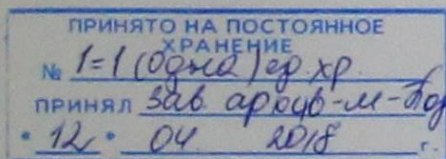 ПРИНЯТО НА ПОСТОЯННОЕ
ХРАНЕНИЕ
№ 1=1 (одна) ед. хр.
ПРИНЯЛ зав.
"12" 04. 2018 г.